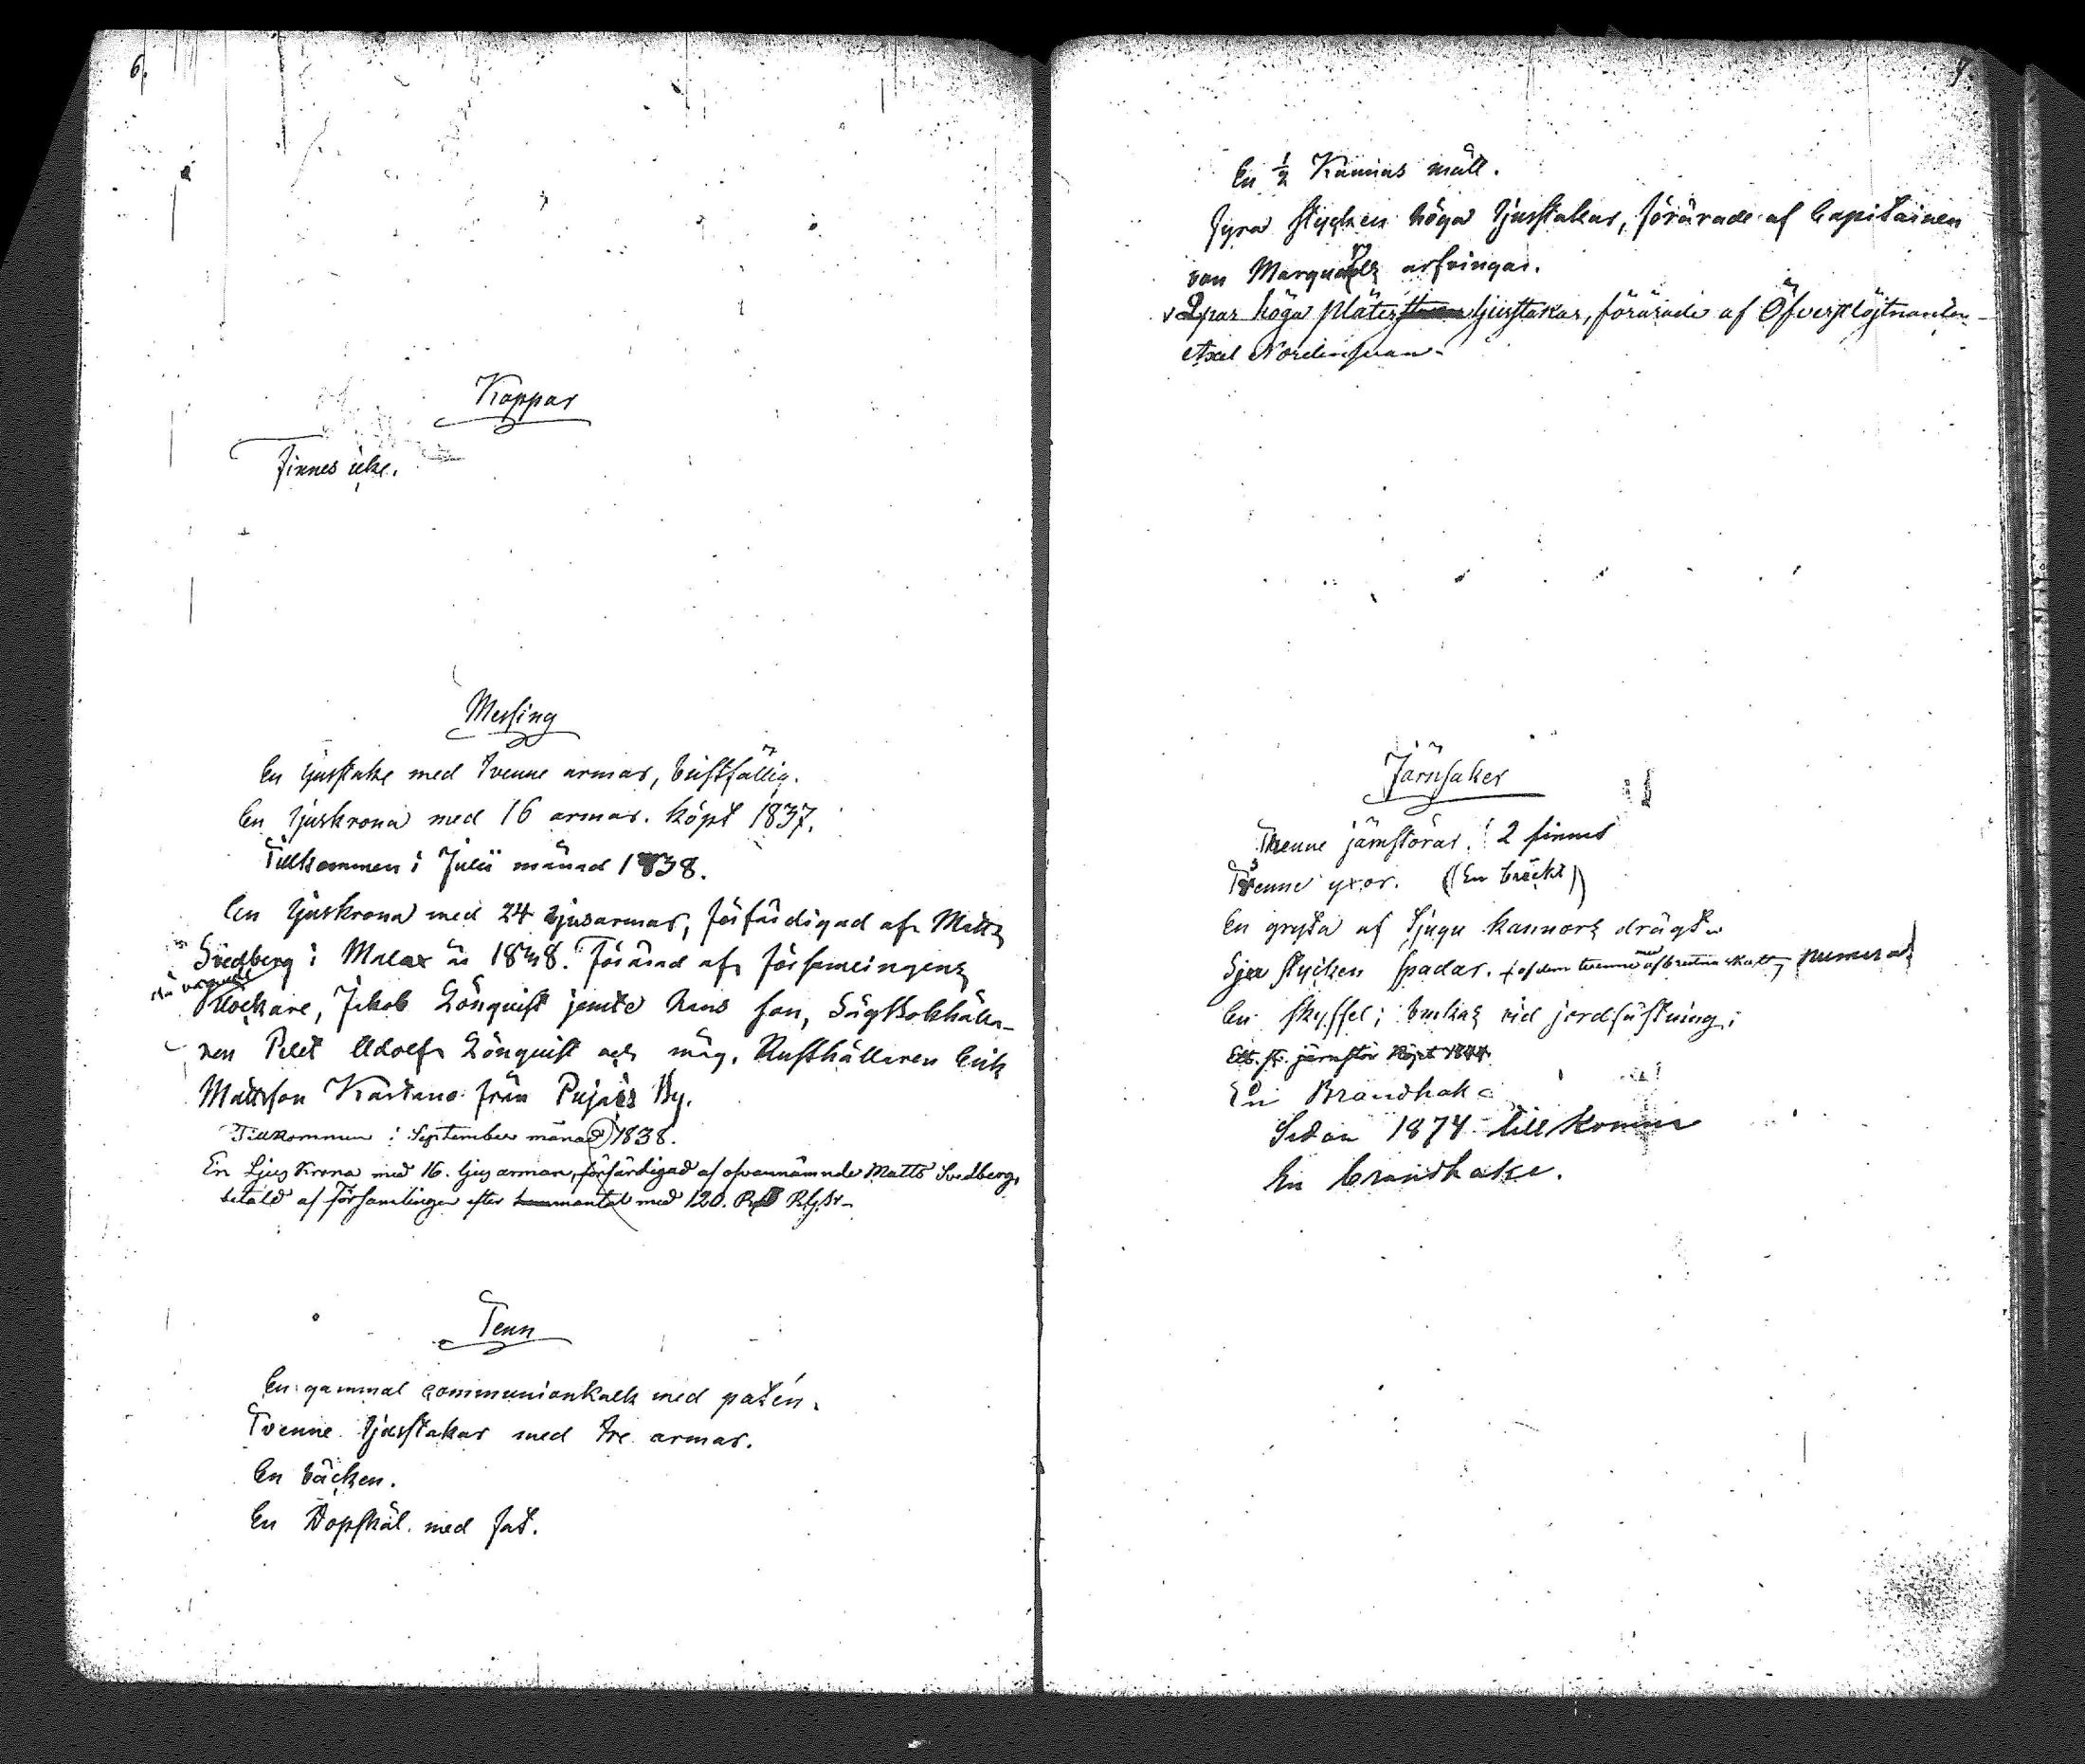 6.
Koppar
Finnes icke.
Messing
En ljusstake med tvenne armar, bristfällig.
En ljuskrona med 16 armar. köpt 1837.
Tillkommen i Julii månad 1838.
En ljuskrona med 24 ljusarmar, förfärdigad af Matts
Svedberg i Malax år 1838. Förärad af församlingens
då varande
Klockare, Jakob Lönquist jemte hans son,
ren Adolf Lönquist och måg, Rusthållaren Erik
Mattsson från By.
Tillkommen i September månad 1838.
En Ljus Krona med 16. ljus armar, förfärdigad af ofvannämnde Matts Svedberg,
betald af Församlingen efter med 120. R
Tenn
En gammal communionkalk med patén.
Tvenne ljusstakar med tre armar.
En bäcken.
En Dopskål med fat.
7.
En ½ Kannas mått.
Fyra stycken höga ljusstakar, förärade af Capitainen
von arfvingar.
2 par höga pläter ljusstakar, förärade af Öfverstlöjtnanten
Axel Nordensvan.
Järnsaker
Trenne järnstörar. 2 finnes
Trenne yxor. (En bräckt)
En gryta af tjugu kannors drägt
Sju stycken spadar. af dem tvenne med afbrutna skaft, numera
En skyffel; brukas vid jordfästning;
Ett st. järnstör Köpt 1844.
En Brandhake
Sedan 1874 tillkommit
En brandhake.